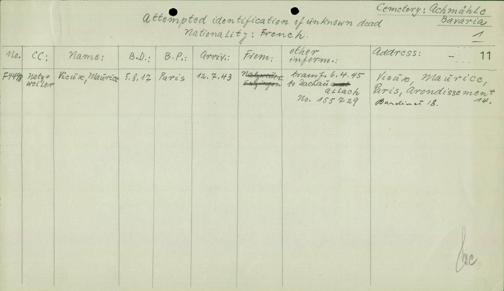 Cemetery: Achmühle
Bavaria
Attempted identification of unknown dead
Nationality: French
1
No. CC: Name: B.D.: B.P.: Arriv.: From: other inform.: Address: - 11
Natzweiler Vieux, Maurice 5.8.12 Paris 12.7.43 transf. 6.4.45 to Dachau Allach No. 155729 Vieux, Maurice, Paris, Arondissement 14.